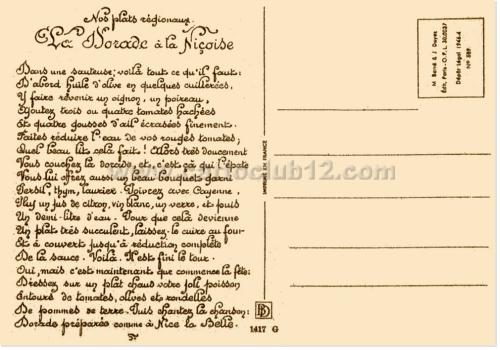 Nos plats régionaux.
La Dorade à la Niçoise
Dans une sauteuse; voilà tout ce qu'il faut:
D'abord huile d'olive en quelques cuillerées,
Y faire revenir un oignon, un poireau,
Ajoutez trois ou quatre tomates hachées
Et quatre gousses d'ail écrasées finement.
Faites réduire l'eau de vos rouges tomates;
Quel beau lit cela fait! Alors très doucement
Vous couchez la dorade et, c'est çà qui l'épate
Vous lui offrez aussi un beau bouquet garni
Persil, thym, laurier. Poivrez avec Cayenne,
Plus un jus de citron, vin blanc, un verre, et puis
Un demi-litre d'eau. Pour que cela devienne
Un plat très succulent, laissez-le cuire au four
Et à couvert jusqu'à réduction complète
De la sauce. Voilà. N'est fini le tour.
Oui, mais c'est maintenant que commence la fête:
Dressez sur un plat chaud votre joli poisson
Entouré de tomates, olives et rondelles
De pommes se terre. Puis chantez la chanson:
Dorade préparée comme à Nice la Belle.
1417 G
BD
IMPRIMÉ EN FRANCE
M. Barré & J. Dayez
Édit. Paris - O.P.L. 30.0037
Dépôt légal 1946-4
N° 589
www.cartoclub12.com